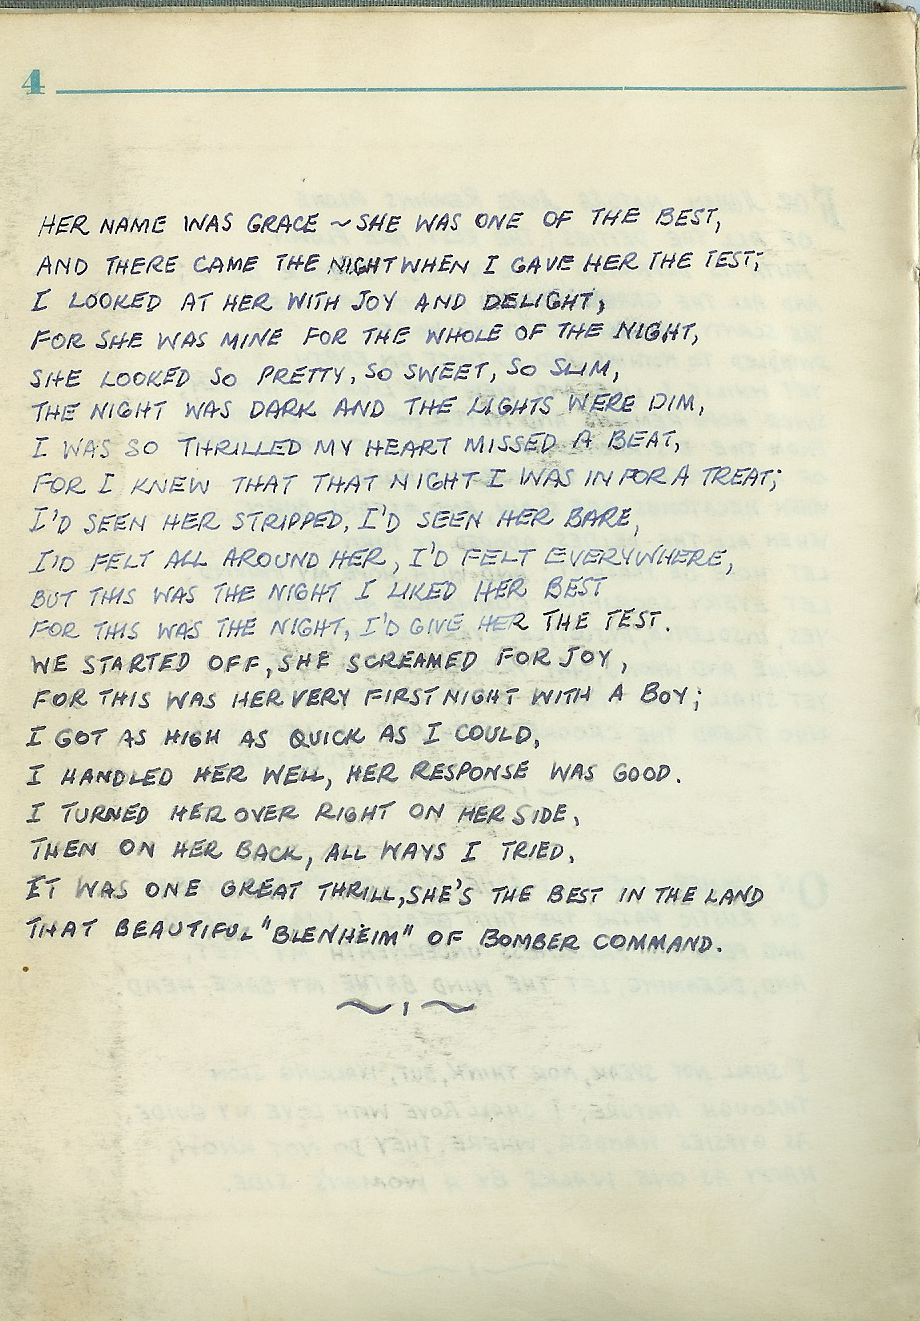 4
HER NAME WAS GRACE ~ SHE WAS ONE OF THE BEST,
AND THERE CAME THE NIGHT WHEN I GAVE HER THE TEST;
I LOOKED AT HER WITH JOY AND DELIGHT,
FOR SHE WAS MINE FOR THE WHOLE OF THE NIGHT,
SHE LOOKED SO PRETTY, SO SWEET, SO SLIM,
THE NIGHT WAS DARK AND THE LIGHTS WERE DIM,
I WAS SO THRILLED MY HEART MISSED A BEAT,
FOR I KNEW THAT THAT NIGHT I WAS IN FOR A TREAT;
I'D SEEN HER STRIPPED, I'D SEEN HER BARE,
I'D FELT ALL AROUND HER, I'D FELT EVERYWHERE,
BUT THIS WAS THE NIGHT I LIKED HER BEST
FOR THIS WAS THE NIGHT, I'D GIVE HER THE TEST.
WE STARTED OFF, SHE SCREAMED FOR JOY,
FOR THIS WAS HER VERY FIRST NIGHT WITH A BOY;
I GOT AS HIGH AS QUICK AS I COULD,
I HANDLED HER WELL, HER RESPONSE WAS GOOD.
I TURNED HER OVER RIGHT ON HER SIDE,
THEN ON HER BACK, ALL WAYS I TRIED,
IT WAS ONE GREAT THRILL, SHE'S THE BEST IN THE LAND
THAT BEAUTIFUL "BLENHEIM" OF BOMBER COMMAND.